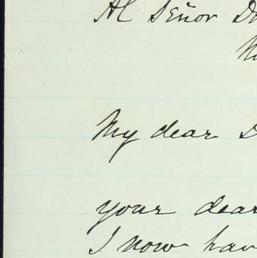 Al Señor D
My dear
your dear
I now hav